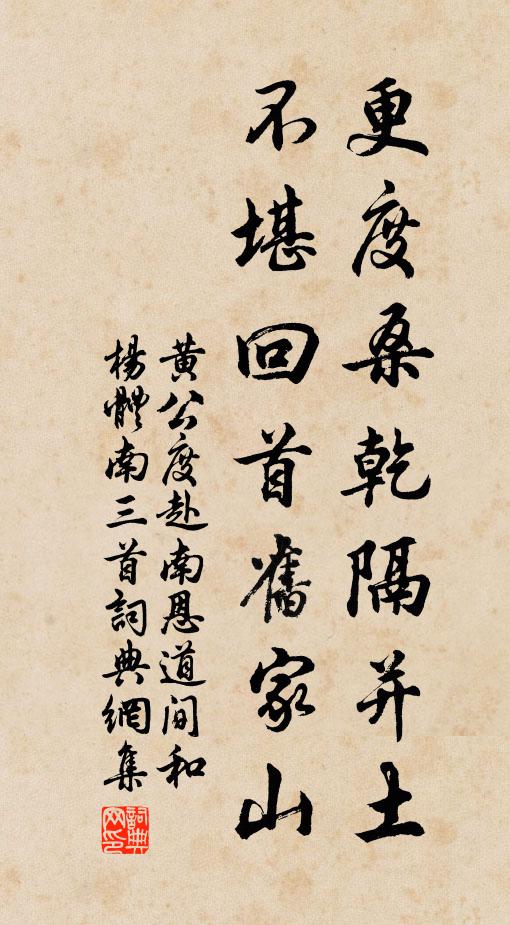 更度桑乾隔并土
不堪回首舊家山
黄公度赴南恩道间和
楊體南三首詞典網集
詞典网印